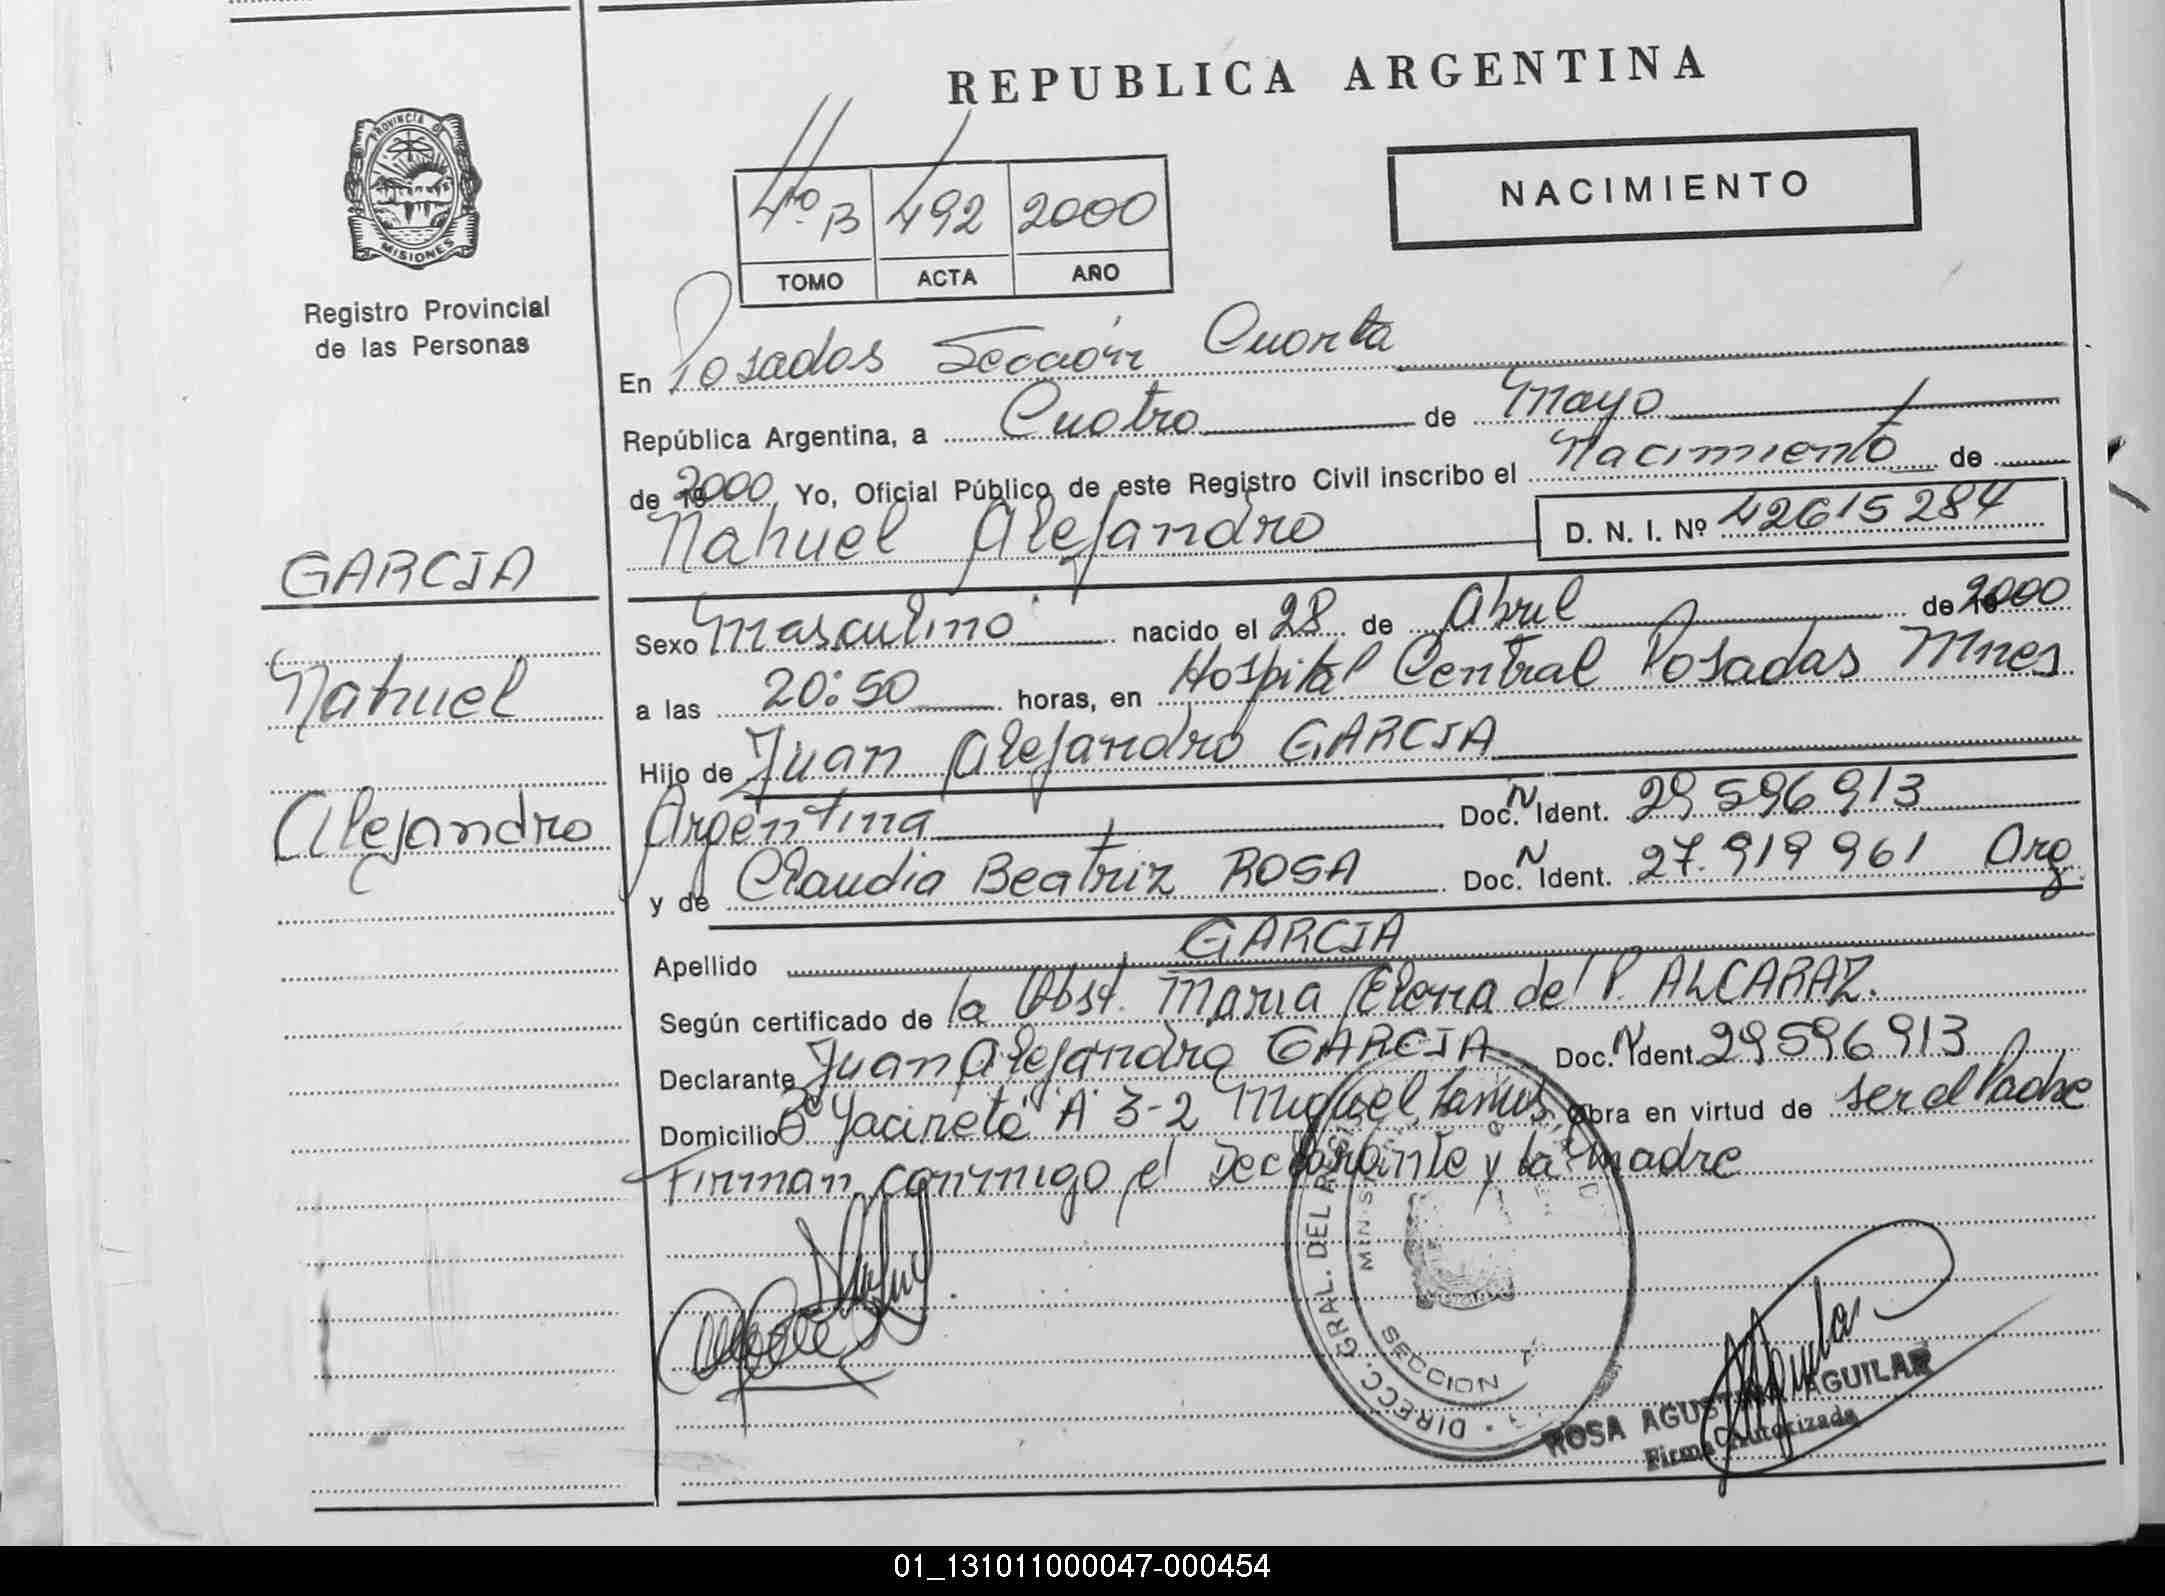 REPUBLICA ARGENTINA
PROVINCIA DE
MISIONES
Registro Provincial
de las Personas
NACIMIENTO
4to B 492 2000
TOMO ACTA AÑO
En Posadas Sección Cuarta
República Argentina, a Cuatro de Mayo
de 2000 Yo, Oficial Público de este Registro Civil inscribo el Nacimiento de
Nahuel Alejandro D. N. I. Nº 42615284
GARCIA
Nahuel
Alejandro
Sexo Masculino nacido el 28 de Abril de 2000
a las 20:50 horas, en Hospital Central Posadas Mnes
Hijo de Juan Alejandro GARCIA
Argentina Doc. N Ident. 29596913
y de Claudia Beatriz ROSA Doc. N Ident. 27.919961 Arg
Apellido GARCIA
Según certificado de la Obst. Maria Elena del P. ALCARAZ.
Declarante Juan Alejandro GARCIA Doc. N Ident. 29596913
Domicilio Bº Yacireta "A" 3-2 Miguel Lanus Obra en virtud de ser el Padre
Firman conmigo el Declarante y la Madre
DIRECC. GRAL. DEL
SECCION
ROSA AGUSTINA AGUILAR
Firma Autorizada
01_131011000047-000454